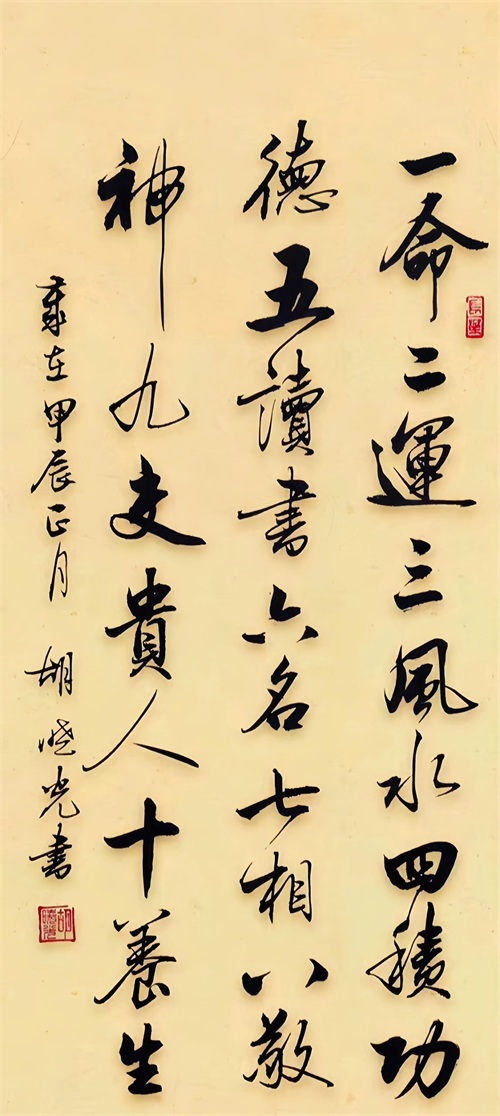 一命二運三風水四積功
德五讀書六名七相八敬
神九交貴人十養生
歲在甲辰正月 胡曉光書